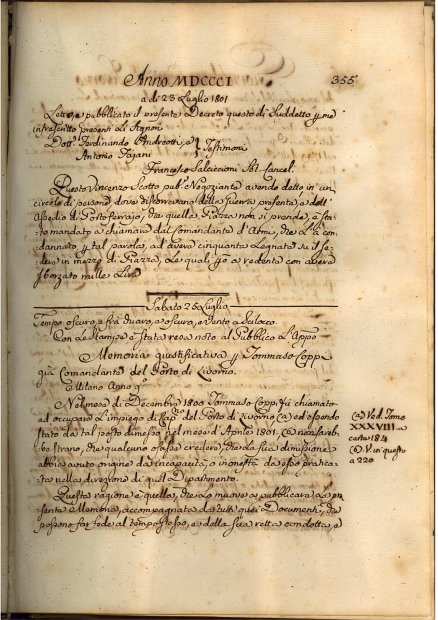 Anno MDCCCI
355
a di 23 Luglio 1801
Letto, e pubblicato il presente Decreto questo dì Suddetto p me
infrascritto presenti li Signori
Dott.r Ferdinando Andreotti, e
Antonio Fajani
Testimoni
Francesco Salciccioni Canc
Questo Vincenzo Scotto pub.o Negoziante avendo detto in un
circolo di persone dove discorrevano della Guerra presente, e dell'
Assedio di Portoferrajo, che quella Piazza non si prende, è sta-
to mandato a chiamare dal Comandante d'Armi, che L'à con-
dannato p tal parola, ad avere cinquanta Legnate su il se-
dere in mezzo di Piazza, Le quali à redente con avere
sborzato mille Lire
Sabato 25 Luglio
Tempo oscuro, e frà chiaro, e oscuro, e vento a Scilocco
Con Le Stampe è stata resa noto al Pubblico L'Appo
Memoria giustificativa p Tommaso Coppi
già Comandante del Porto di Livorno.
Milano Anno 9.o
Nel mese di Decembre 1800 Tommaso Coppi fù chiamato
ad occupare L'impiego di del Porto di Livorno (a) ed essendo
stato da tal posto dimesso nel mese d'Aprile 1801. (b) non sareb-
be strano, che qualcuno osasse credere, che La sua dimissione
abbia avuto origine da incapacità, o inonestà da esso pratica-
ta nella direzione di quel Dipartimento.
Questa ragione è quella, che Lo muove a pubblicare la pre-
sente Memoria, accompagnata da tutti quei Documenti, che
possono far fede al tempo stesso, e della sua retta condotta, e
(a) Ved. Tomo
XXXVIII a
carta 184
(b) V. in questo
a 220